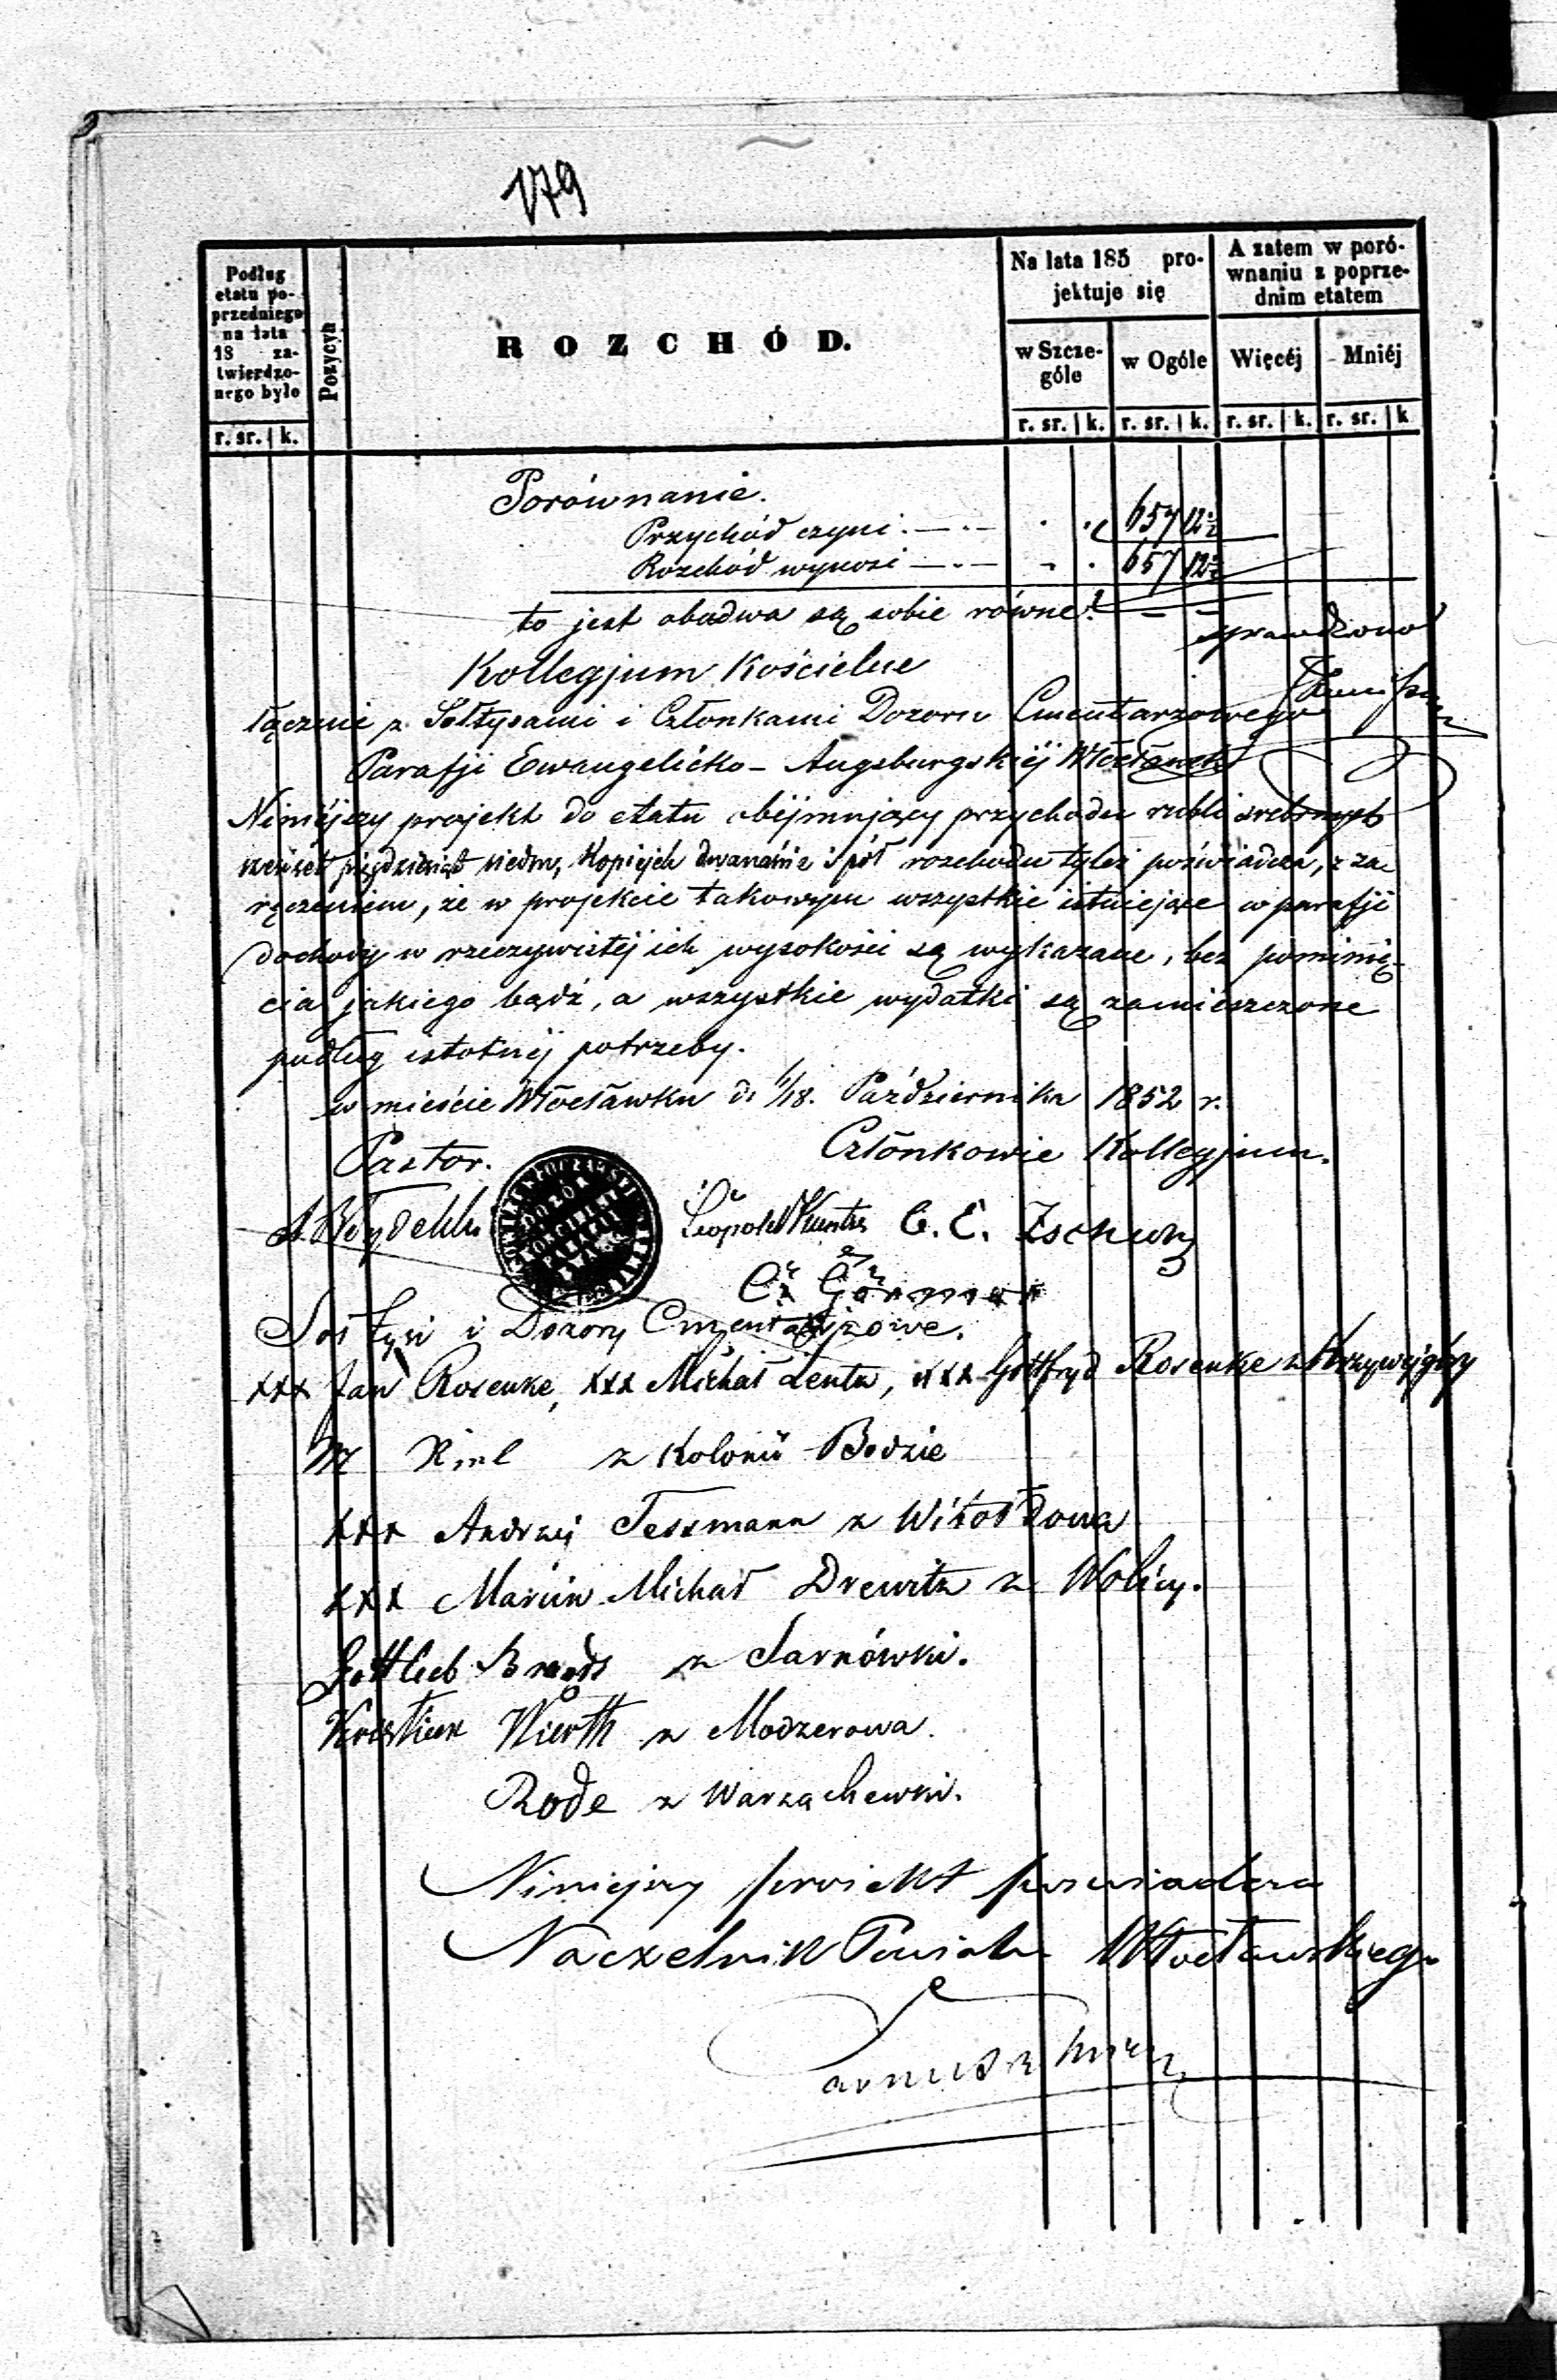 179
Podług etatu poprzedniego na lata 18 zatwierdzonego było
Pozycya
ROZCHÓD.
Na lata 185 pro-
jektuje się
A zatem w poró-
wnaniu z poprze-
dnim etatem
w Szcze-
góle
w Ogóle
Więcéj
Mniéj
r. sr. k. r. sr. k. r. sr. k. r. sr. k. r. sr. k
Porównanie.
Przychód czyni 657 12½
Rozchód wynosi 657 12½
to jest obadwa są sobie równe.
sprawdzono
Kollegjum Kościelne
łącznie z Sołtysami i Członkami Dozoru Cmentarzowego
Parafji Ewangelicko-Augsburgskiéj Włocławek
Niniéjszy projekt do etatu obéjmujący przychodu rubli srebrnych
sześćset pięćdziesiąt siedm, kopiejek dwanaście i pół rozchodu tyleż poświadcza, z za-
ręczeniem, że w projekcie takowym wszystkie istniejące w parafji
dochody w rzeczywistéj ich wysokości są wykazane, bez pominię-
cia jakiego bądź, a wszystkie wydatki są zamieszczone
podług istotnéj potrzeby.
w mieście Włocławku d. 6/18. Października 1852 r.
Pastor. Członkowie Kollegjum.
Leopold Kuntze C. E.
Sołtysi i Dozory Cmentarzowe.
xxx Jan Rosenke, xxx Michał Lentz, xxx Gottfryd Rosenke z Krzywéjgóry
M z Kolonii Bodzie
xxx Andrzéj Tessmann z Witołdowa
xxx Marcin Michał Drewitz z Wolicy.
Gottlieb z Sarnówki.
Wirth z Modzerowa.
Rode z Warząchewki.
Niniejszy projekt poświadcza
Naczelnik Powiatu Włocławskiego